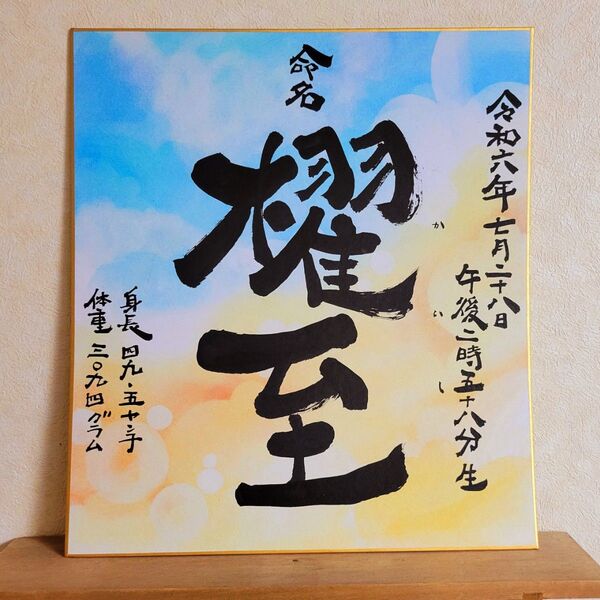 令和六年七月二十八日
午後二時五十八分生
命名
櫂至
かいし
身長 四九・五センチ
体重 三〇九四グラム